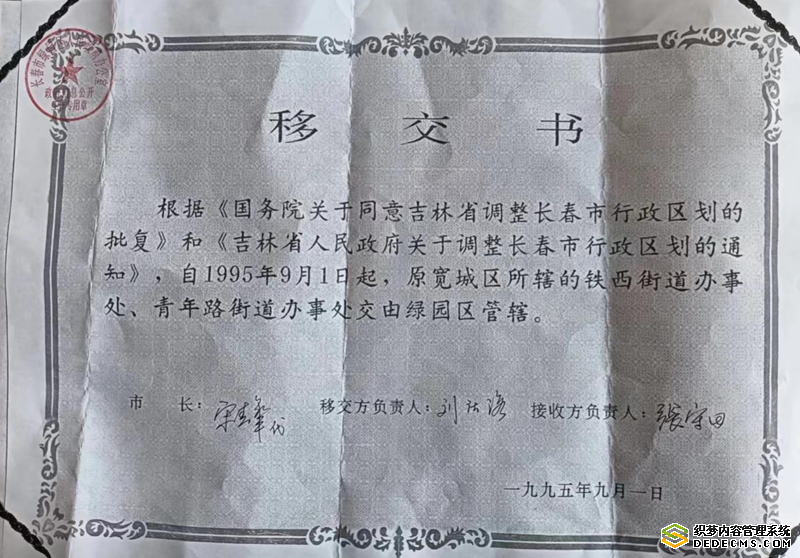 移交书
根据《国务院关于同意吉林省调整长春市行政区划的
批复》和《吉林省人民政府关于调整长春市行政区划的通
知》，自1995年9月1日起，原宽城区所辖的铁西街道办事
处、青年路街道办事处交由绿园区管辖。
市　长：宋春华代　移交方负责人：刘　接收方负责人：张守田
一九九五年九月一日
长春市绿
政　息公开
专用章
织梦内容管理系统
DEDECMS.COM